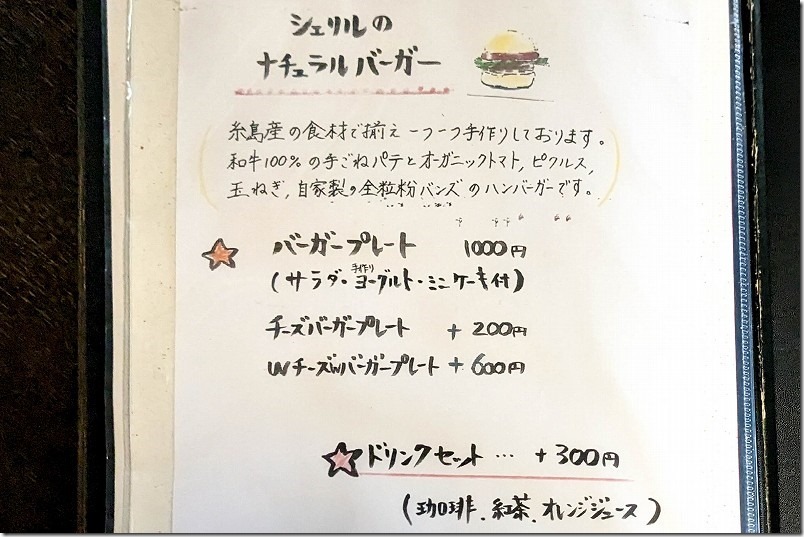 シェリルの
ナチュラルバーガー
糸島産の食材で揃え一つ一つ手作りしております。
和牛100%の手ごねパテとオーガニックトマト,ピクルス,
玉ねぎ,自家製の全粒粉バンズのハンバーガーです。
バーガープレート 1000円
(サラダ・手作りヨーグルト・ミニケーキ付)
チーズバーガープレート +200円
WチーズWバーガープレート +600円
ドリンクセット… +300円
(珈琲、紅茶、オレンジジュース)